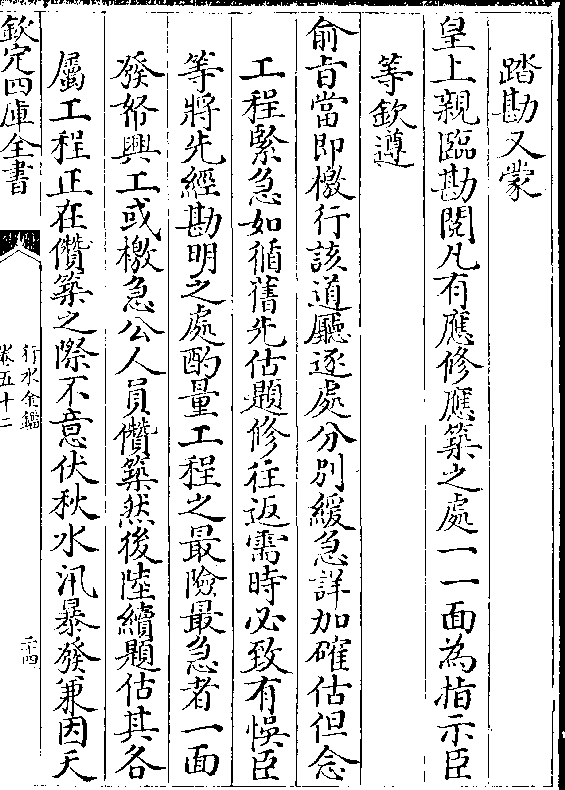 踏勘又蒙
皇上親臨勘閱凡有應修應築之處一一面為指示臣
等欽遵
俞旨當即檄行該道廳逐處分別緩急詳加確估但念
工程緊急如循舊先估題修往返需時必致有悞臣
等將先經勘明之處酌量工程之最險最急者一面
發帑興工或檄急公人員儹築然後陸續題估其各
屬工程正在儹築之際不意伏秋水汛暴發兼因天
欽定四庫全書
行水金鑑
卷五十二
二十四